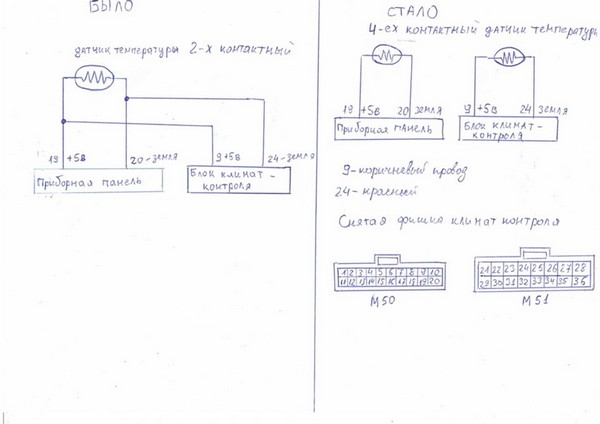 БЫЛО
датчик температуры 2-х контактный
19 +5в 20-земля 9+5в 24-земля
Приборная панель
Блок климат-
контроля
СТАЛО
4-ех контактный датчик температуры
19 +5в 20 земля 9 +5в 24 земля
Приборная панель
Блок климат-
контроля
9-коричневый провод
24-красный
Снятая фишка климат контроля
1 2 3 4 5 6 7 8 9 10
11 12 13 14 15 16 17 18 19 20
М50
21 22 23 24 25 26 27 28
29 30 31 32 33 34 35 36
М51